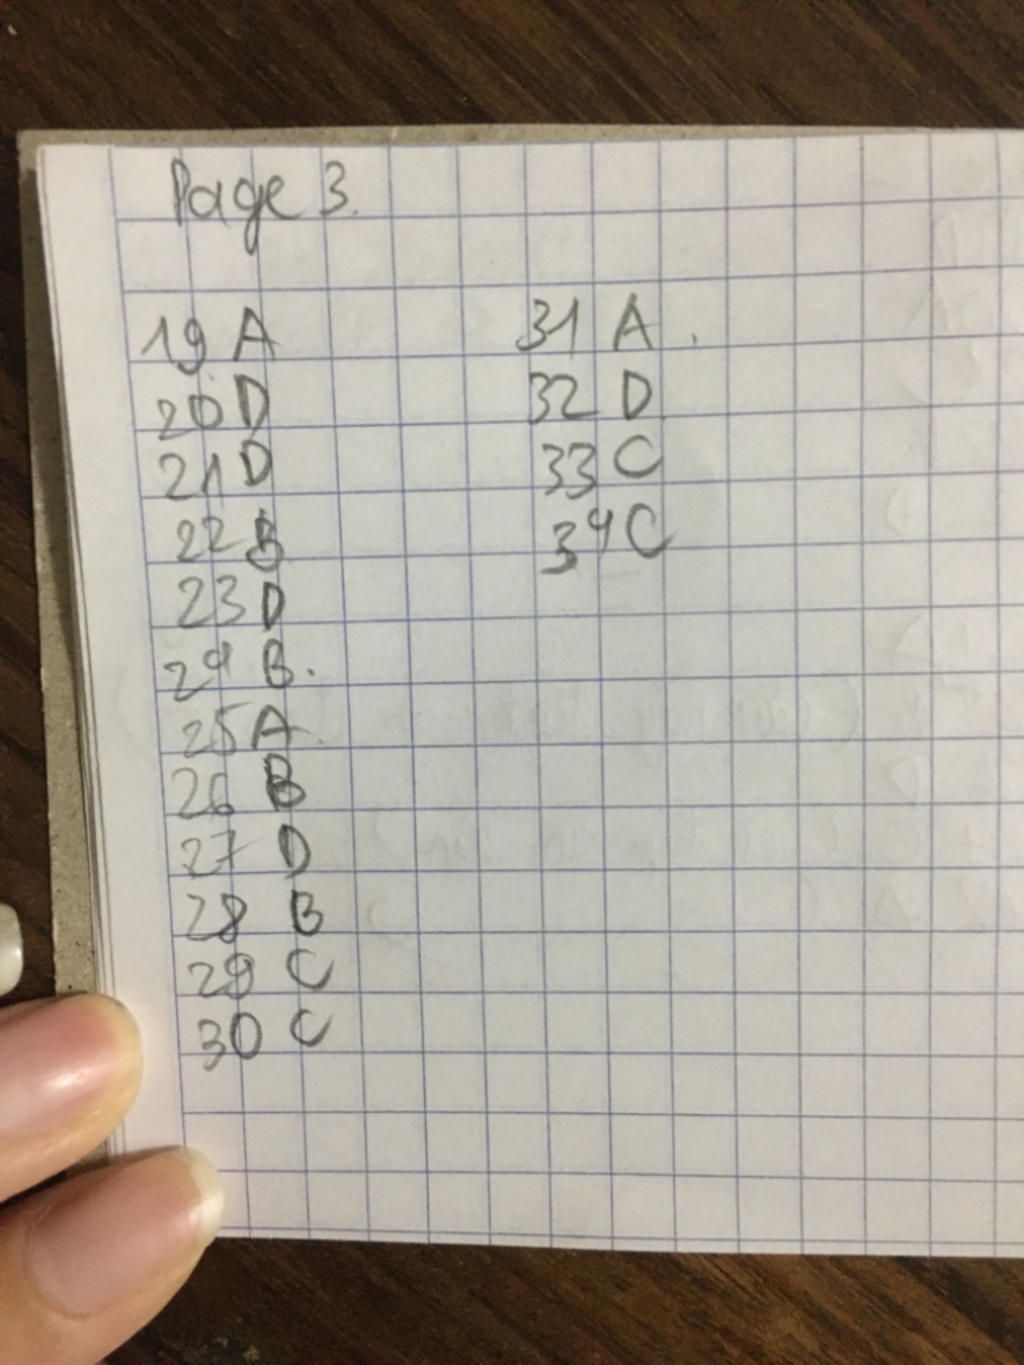 Page 3.
19 A
20 D
21 D
22 B
23 D
24 B.
25 A.
26 B
27 D
28 B
29 C
30 C
31 A.
32 D
33 C
34 C